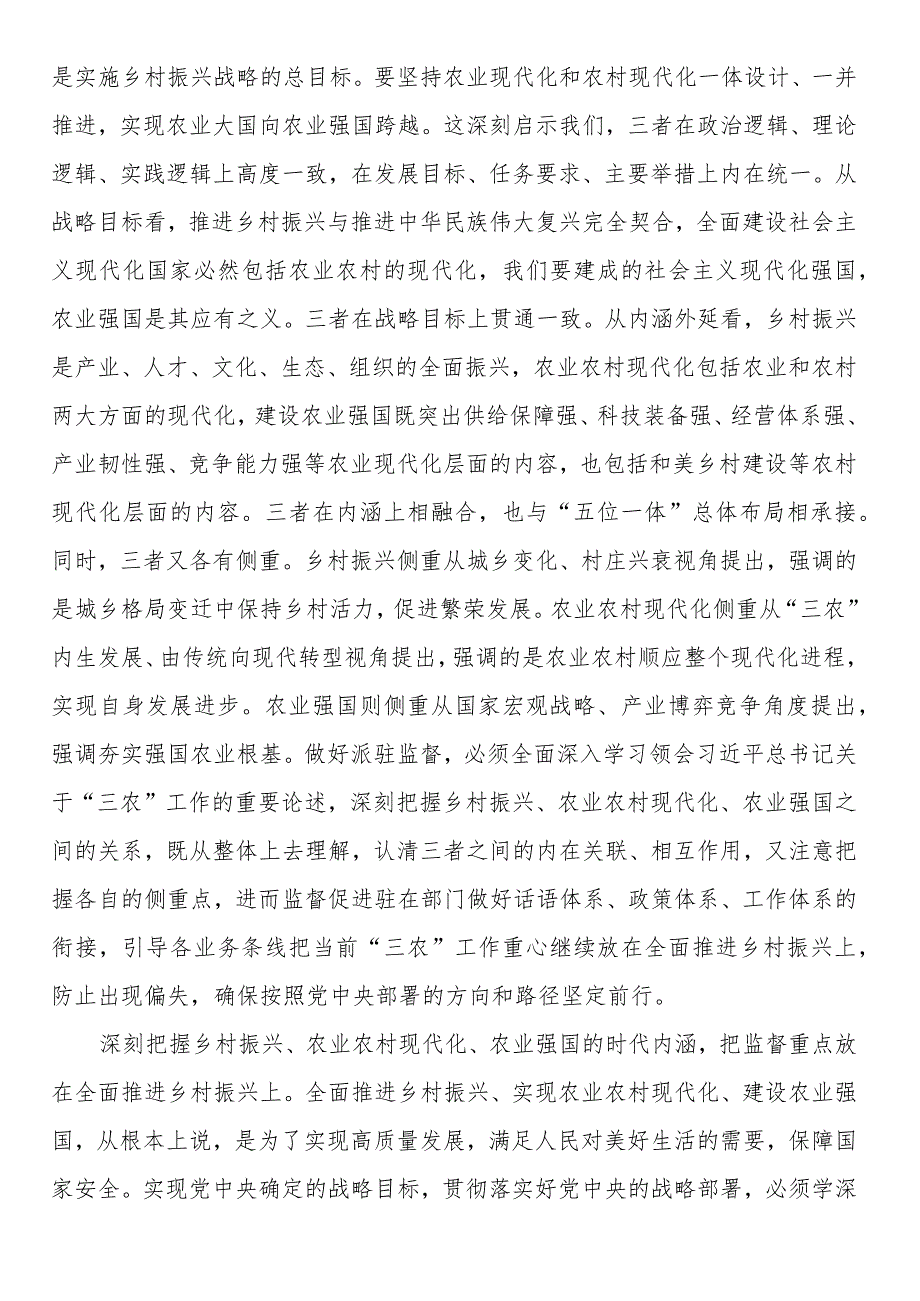 是实施乡村振兴战略的总目标。要坚持农业现代化和农村现代化一体设计、一并
推进，实现农业大国向农业强国跨越。这深刻启示我们，三者在政治逻辑、理论
逻辑、实践逻辑上高度一致，在发展目标、任务要求、主要举措上内在统一。从
战略目标看，推进乡村振兴与推进中华民族伟大复兴完全契合，全面建设社会主
义现代化国家必然包括农业农村的现代化，我们要建成的社会主义现代化强国，
农业强国是其应有之义。三者在战略目标上贯通一致。从内涵外延看，乡村振兴
是产业、人才、文化、生态、组织的全面振兴，农业农村现代化包括农业和农村
两大方面的现代化，建设农业强国既突出供给保障强、科技装备强、经营体系强、
产业韧性强、竞争能力强等农业现代化层面的内容，也包括和美乡村建设等农村
现代化层面的内容。三者在内涵上相融合，也与“五位一体”总体布局相承接。
同时，三者又各有侧重。乡村振兴侧重从城乡变化、村庄兴衰视角提出，强调的
是城乡格局变迁中保持乡村活力，促进繁荣发展。农业农村现代化侧重从“三农”
内生发展、由传统向现代转型视角提出，强调的是农业农村顺应整个现代化进程，
实现自身发展进步。农业强国则侧重从国家宏观战略、产业博弈竞争角度提出，
强调夯实强国农业根基。做好派驻监督，必须全面深入学习领会习近平总书记关
于“三农”工作的重要论述，深刻把握乡村振兴、农业农村现代化、农业强国之
间的关系，既从整体上去理解，认清三者之间的内在关联、相互作用，又注意把
握各自的侧重点，进而监督促进驻在部门做好话语体系、政策体系、工作体系的
衔接，引导各业务条线把当前“三农”工作重心继续放在全面推进乡村振兴上，
防止出现偏失，确保按照党中央部署的方向和路径坚定前行。
深刻把握乡村振兴、农业农村现代化、农业强国的时代内涵，把监督重点放
在全面推进乡村振兴上。全面推进乡村振兴、实现农业农村现代化、建设农业强
国，从根本上说，是为了实现高质量发展，满足人民对美好生活的需要，保障国
家安全。实现党中央确定的战略目标，贯彻落实好党中央的战略部署，必须学深